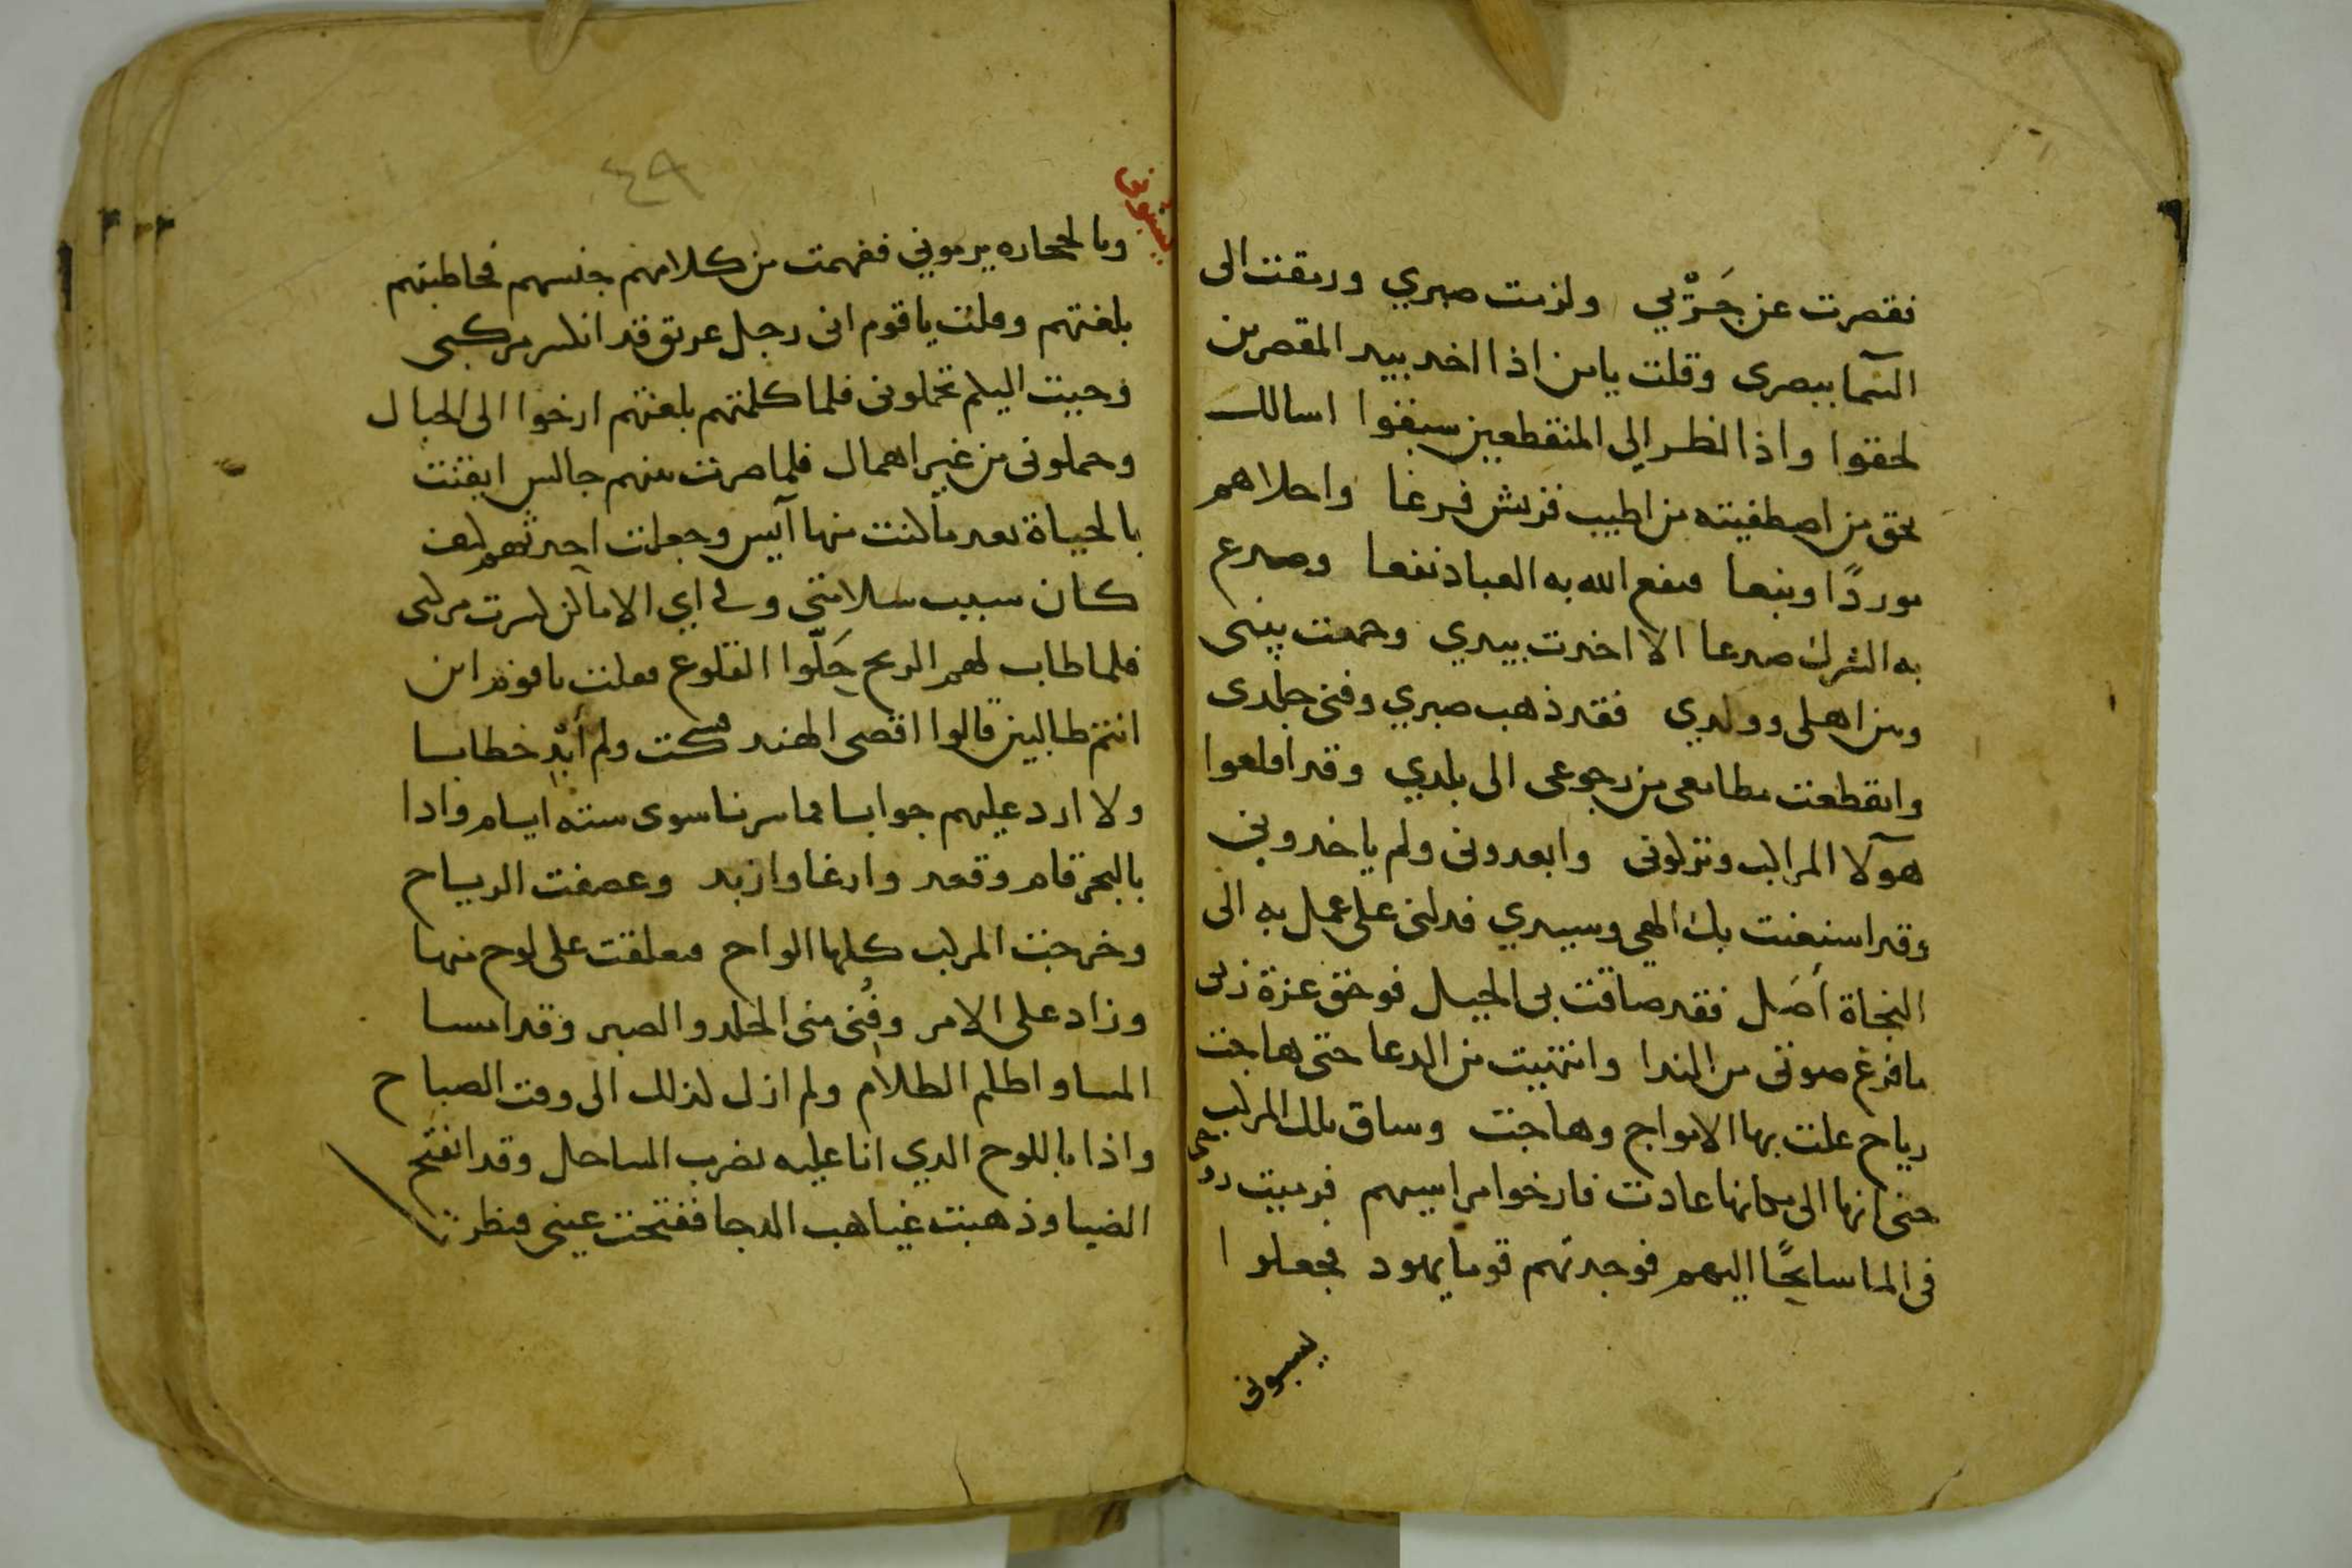 فقصرت عن جَرْيي ولزمت صبري ورمقت الى
السّما ببصرى وقلت يامن اذا اخد بيد المقصرين
لحقوا واذا نظر الى المنقطعين سبقوا اسالك
بحق من اصطفيته من اطيب قريش فرعا واحلاهم
موردًا ونبعا فنفع الله به العباد نفعا وصدع
به الشرك صدعا الا اخدت بيدي وجمعت بينى
وبين اهلى وولدي فقد ذهب صبري وفنى جلدى
وانقطعت مطامعى من رجوعى الى بلدي وقد اقلعوا
هآولا المراكب ونزلونى وابعدونى ولم ياخدونى
وقد استعنت بك الهى وسيدي فدلنى على عمل به الى
النجاة أصَل فقد ضاقت بى الحيل فوحق عزة ربى
ما فرغ صوتى من الندا وانتهيت من الدعا حتى هاجت
رياح علت بها الامواج وهاجت وساق تلك المراكب
حتى انها الى مكانها عادت فارخوا مراسيهم فرميت روحى
فى الما سابحًا اليهم فوجدتهم قوما يهود فجعلوا
يسبونى
٤٩
يسبونى
وبالحجاره يرمونى ففهمت من كلامهم جنسهم فخاطبتهم
بلغتهم وقلت ياقوم انى رجل غريق قد انكسر مركبى
وجيت اليكم تحملونى فلما كلمتهم بلغتهم ارخوا الى الحبال
وحملونى من غير اهمال فلما صرت منهم جالس ايقنت
بالحياة بعد ما كنت منها آيس وجعلت احدثهم كيف
كان سبب سلامتى وفى اي الاماكن كسرت مركبى
فلما طاب لهم الريح حَلّوا القلوع فقلت ياقوم اين
انتم طالبين قالوا اقصى الهند فسكت ولم أبْدِ خطابا
ولا ارد عليهم جوابا فما سرنا سوى سته ايام وادا
بالبحر قام وقعد وارغا وازبد وعصفت الرياح
وخرجت المركب كلها الواح فتعلقت على لوح منها
وزاد على الامر وفُنى منى الجلد والصبر وقد امسا
المسا واظلم الظلام ولم ازل كذلك الى وقت الصباح
واذا باللوح الدي انا عليه يضرب الساحل وقد انفتح
الضيا وذهبت غياهب الدجا ففتحت عينى فنظرت